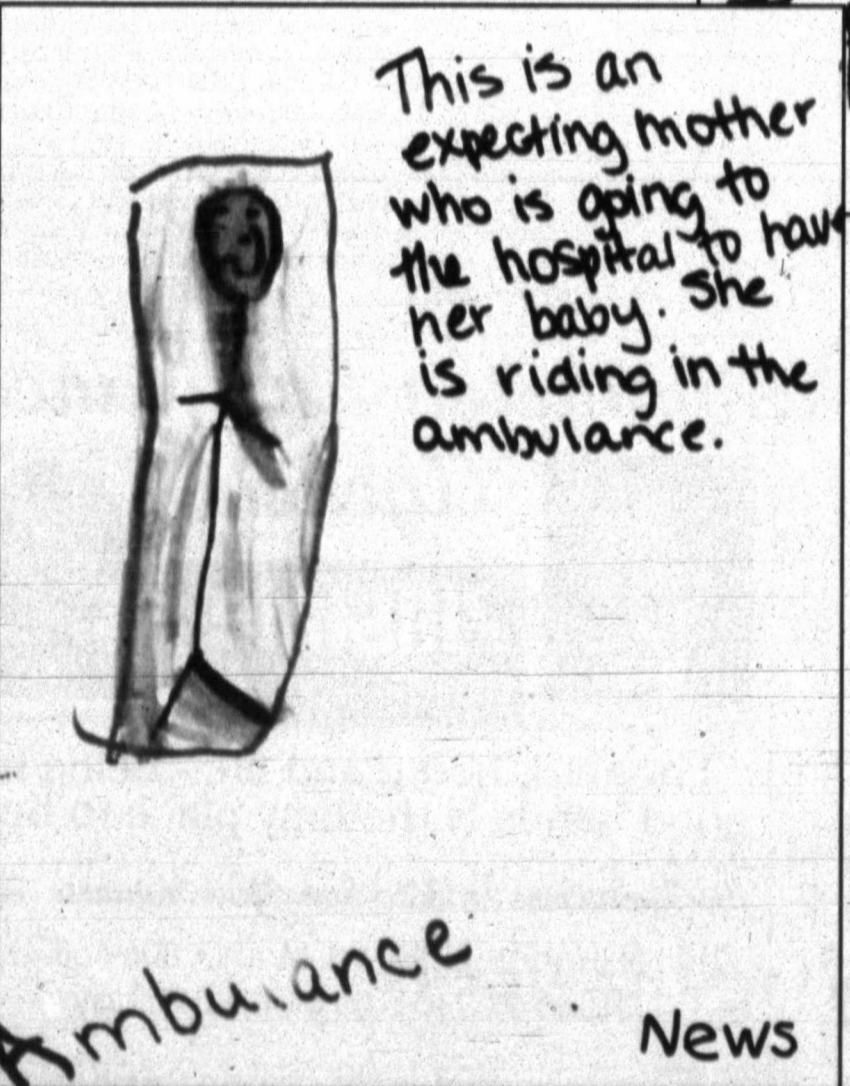 This is an
expecting mother
who is going to
the hospital to have
her baby. She
is riding in the
ambulance.
Ambulance
News